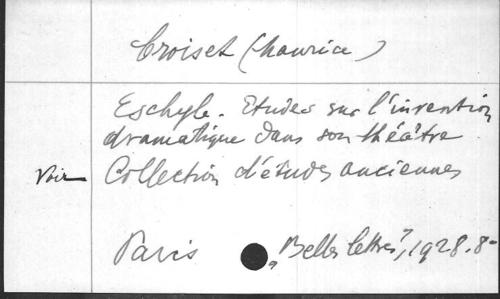 Croiset (Maurice)
Eschyle. Etudes sur l'invention
dramatique dans son théâtre
Voir Collection d'études anciennes
Paris „Belles lettres", 1928. 8°